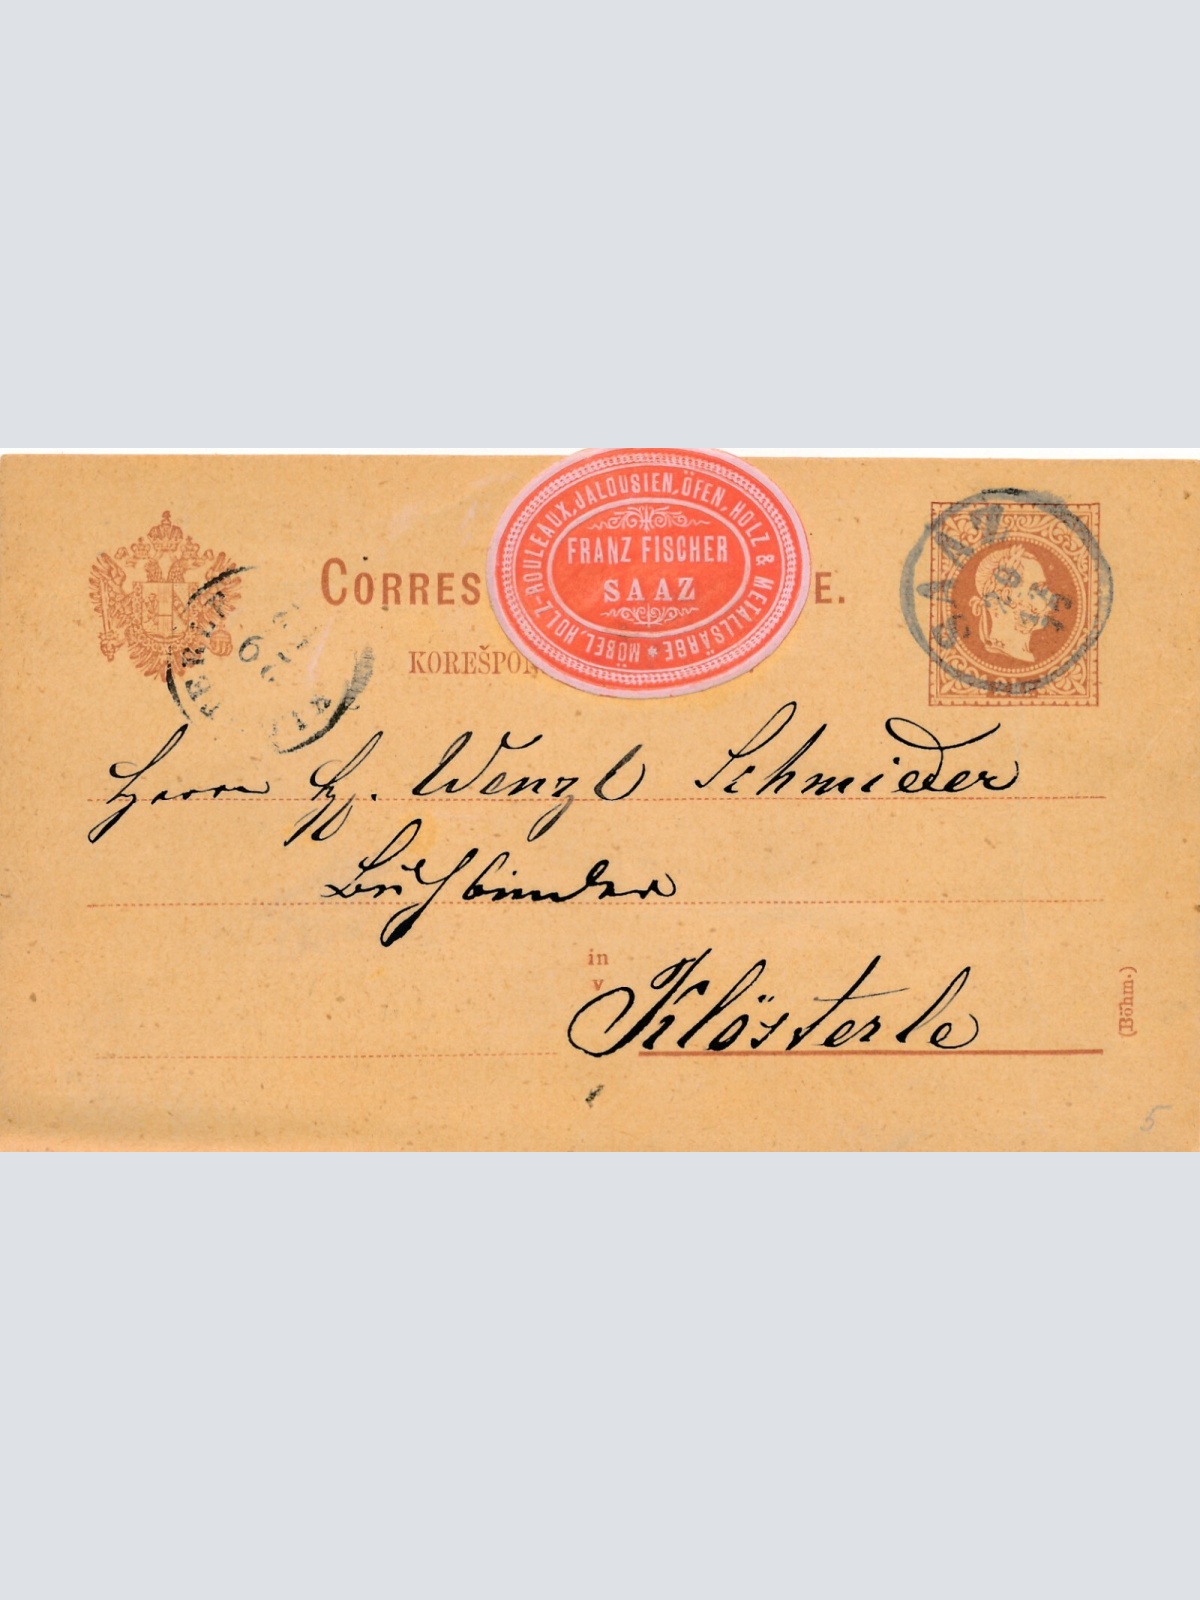 CORRES
E.
KOREŠPON
MÖBEL, HOLZ-ROULEAUX, JALOUSIEN, ÖFEN, HOLZ & METALLSÄRGE *
FRANZ FISCHER
SAAZ
SAAZ
Herrn H. Wenzl Schmieder
Buchbinder
in
v
Klösterle
(Böhm.)
5